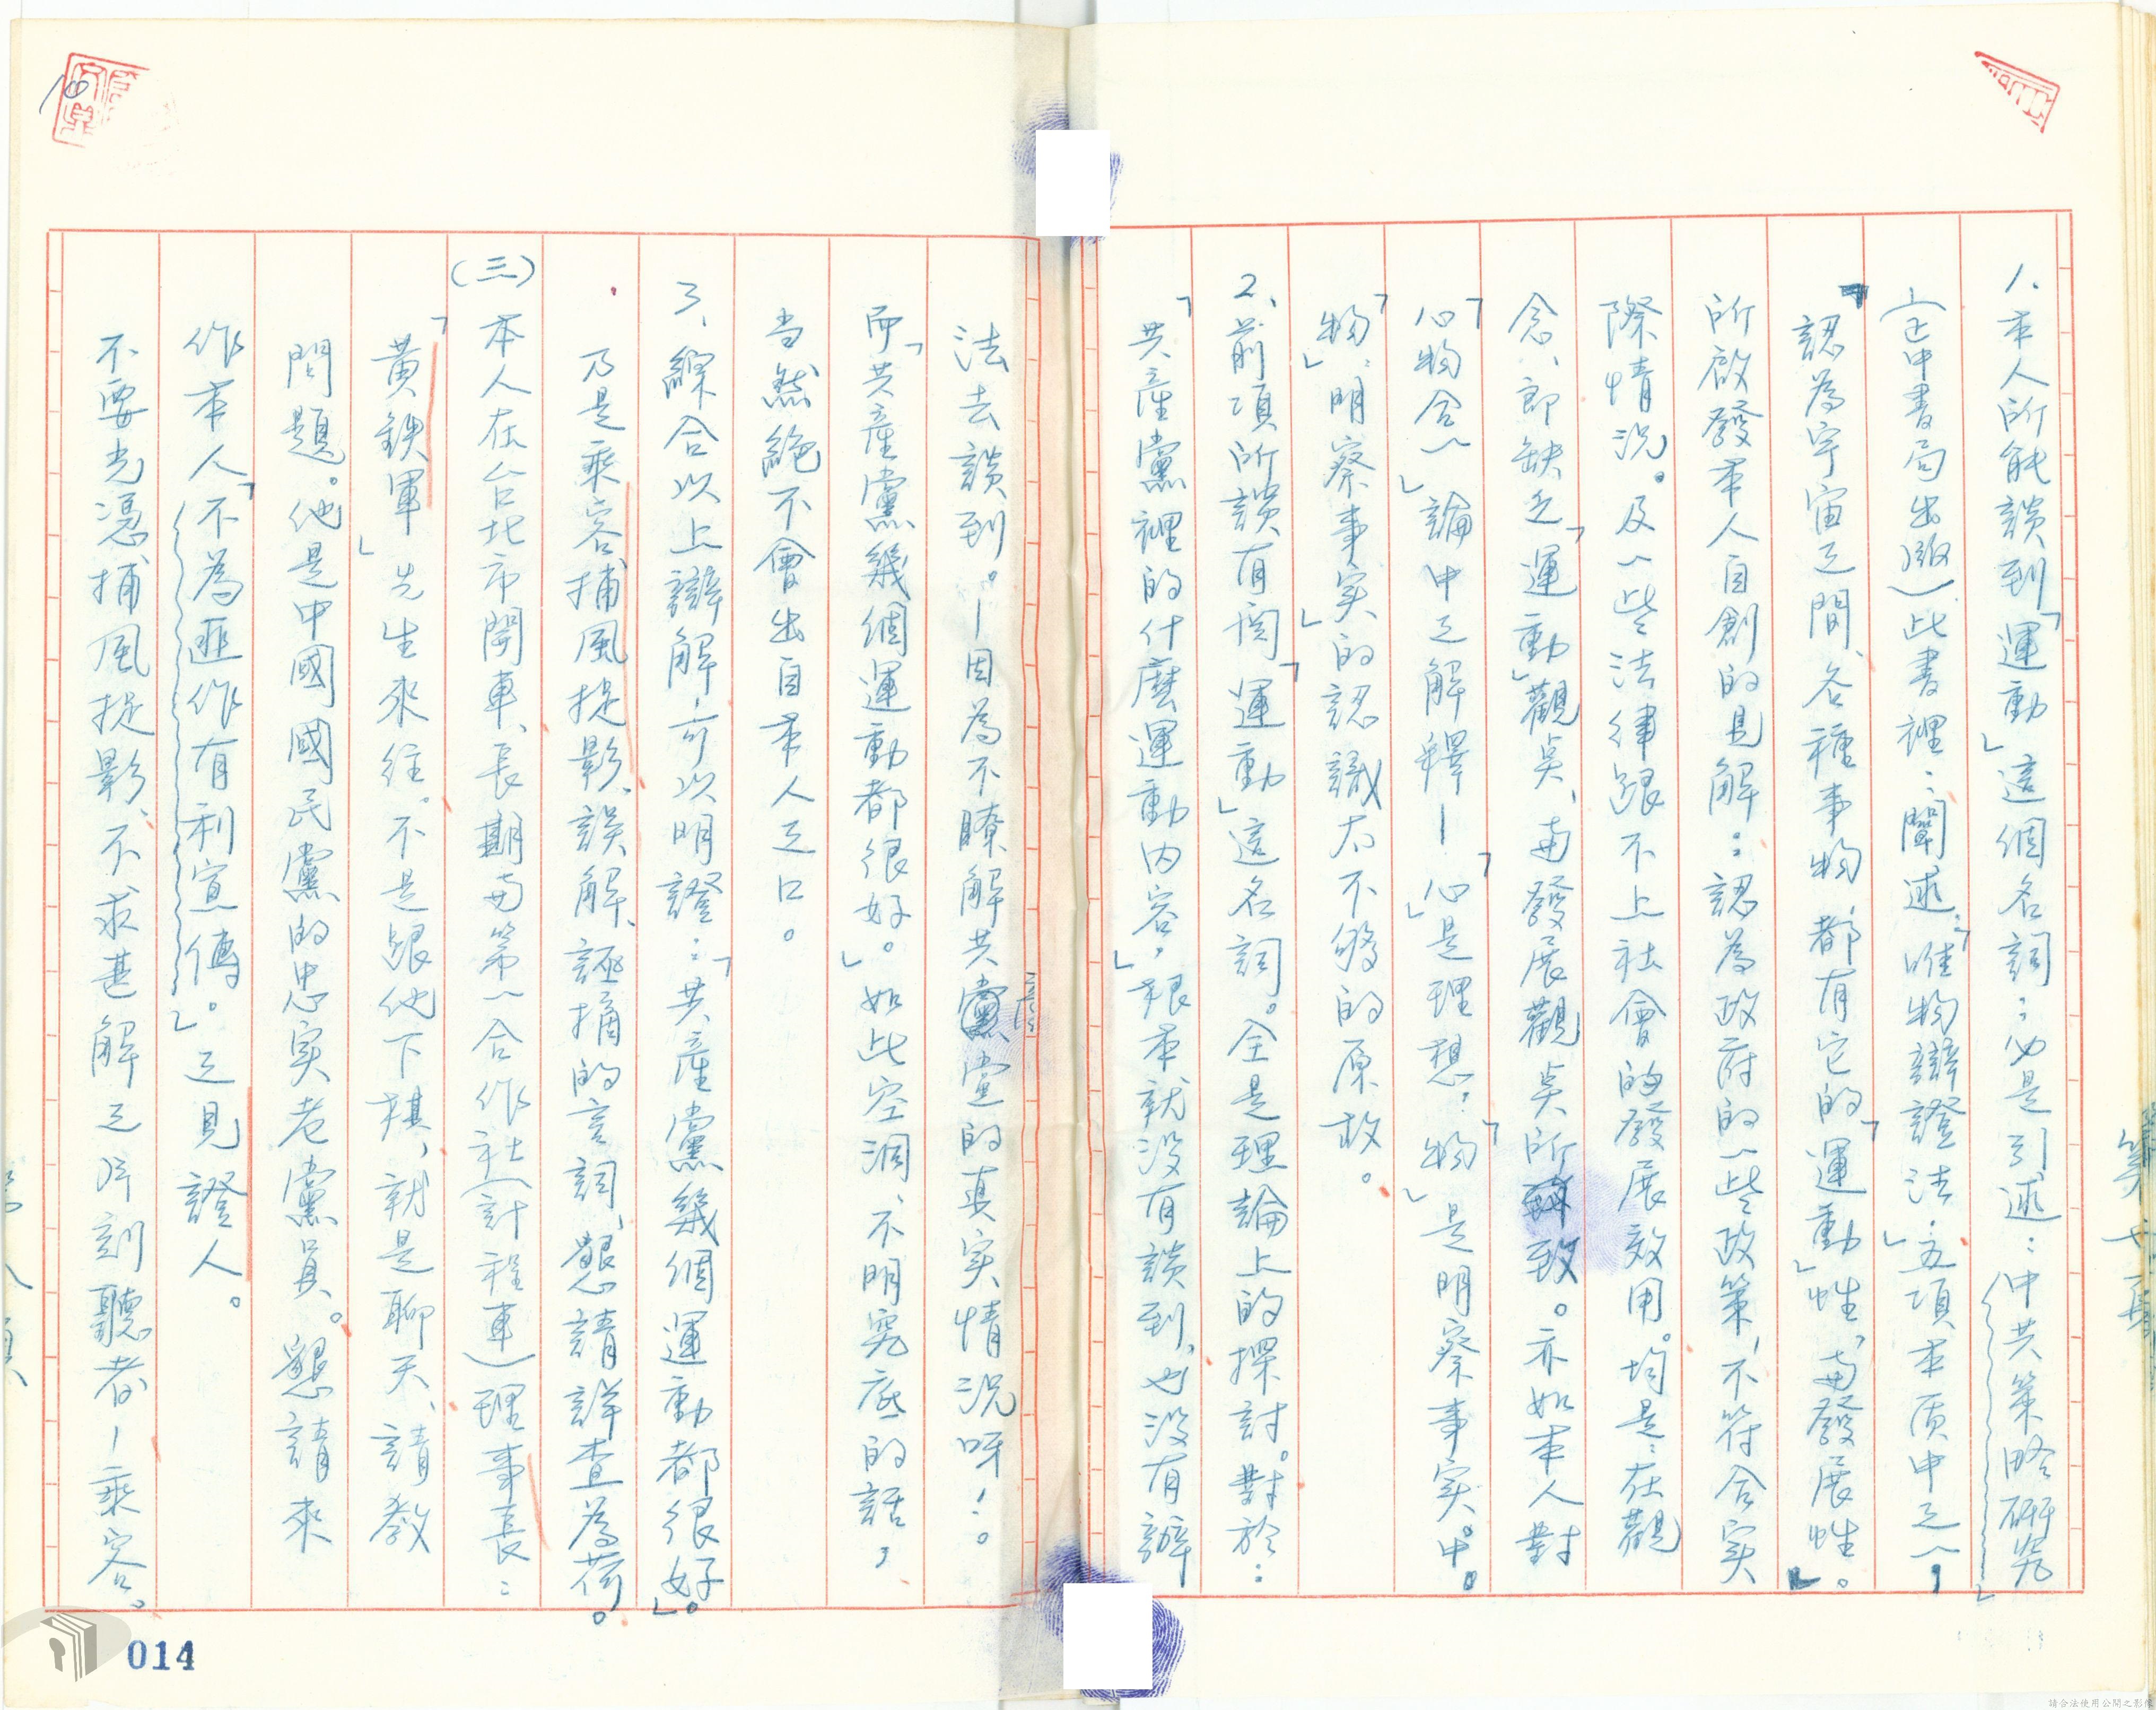 1、本人所能談到「運動」這個名詞：必是引述：「中共策略研究」
（正中書局出版）此書裡：闡述：「唯物辯證法」五項本质中之一，
「認為宇宙之間、各種事物、都有它的「運動」性、與發展性」。
所啟發本人自創的見解：認為政府的一些政策，不符合实
際情況。及一些法律跟不上社會的發展效用。均是：在觀
念、即缺乏「運動」觀点、與發展觀点所致。亦如本人對
「心物合一」論中之解釋－「心」是理想，「物」是明察事实。中。
「物」：明察事实」的認識太不夠的原故。
2、前項所談有関「運動」這名詞。全是理論上的探討。對於：
「共產黨裡的什麼運動内容」，根本就沒有談到，也沒有辦
法去談到。－因為不瞭解共党的真实情況呀！。
而「共產黨幾個運動都很好。」如此空洞、不明究底的話，
当然絶不會出自本人之口。
3、綜合以上辯解，可以明證：「共產黨幾個運動都很好」。
乃是乘客捕風捉影、誤解、誣摘的言詞、懇請詳查為荷。
（三）本人在台北市開車、長期與第一合作社（計程車）理事長：
「黃鉄軍」先生來往。不是跟他下棋，就是聊天、請教
問題。他是中國國民黨的忠实老黨員。懇請來
作本人「不為匪作有利宣傳。」之見證人。
不要光憑捕風捉影、不求甚解之片刻聽者－乘客。
第七頁
014
請合法使用公開之影像